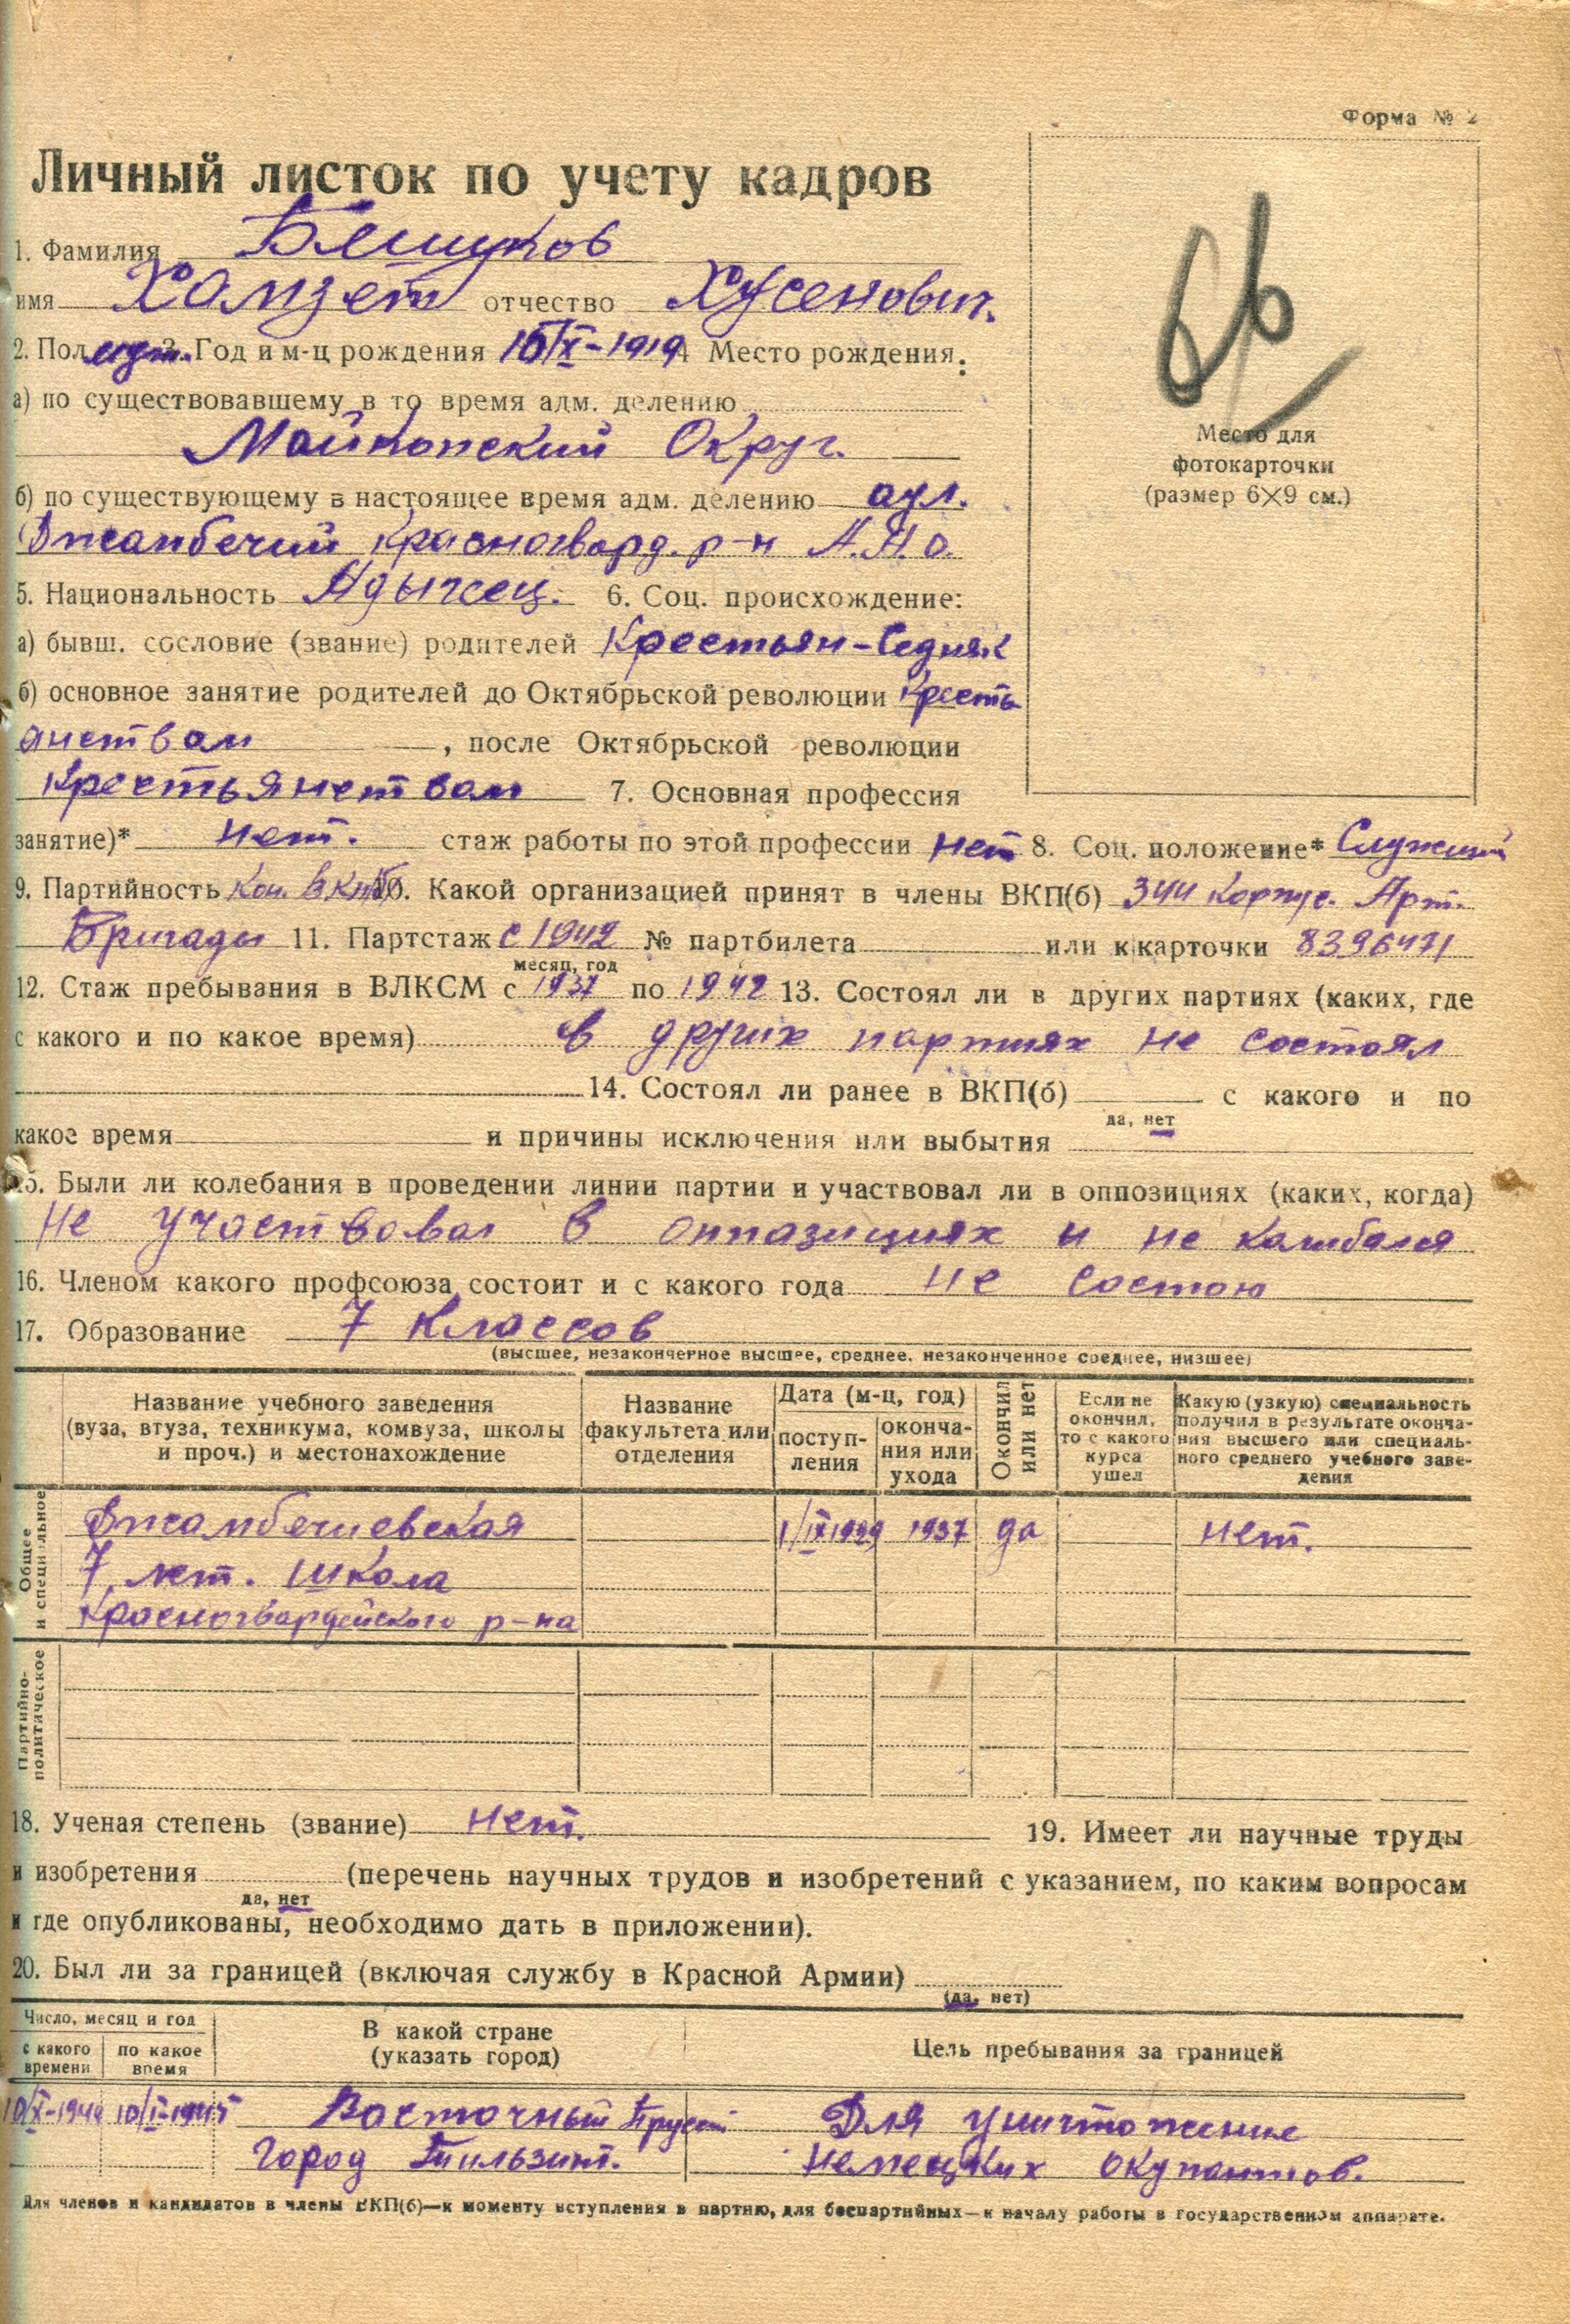 Форма № 2
Личный листок по учету кадров
1. Фамилия Бешуков
имя Хамзет отчество Хусенович.
2. Пол муж. 3. Год и м-ц рождения 15/IX-1919 4 Место рождения:
а) по существовавшему в то время адм. делению
Майкопский Округ.
б) по существующему в настоящее время адм. делению аул.
Джамбечий Красногвард. р-н А.А.О.
5. Национальность Адыгеец. 6. Соц. происхождение:
а) бывш. сословие (звание) родителей Крестьян-Седняк
б) основное занятие родителей до Октябрьской революции Кресть
анствам, после Октябрьской революции
Крестьянствам 7. Основная профессия
занятие)* нет. стаж работы по этой профессии нет 8. Соц. положение* Служащий
9. Партийность Кан. ВКПб 10. Какой организацией принят в члены ВКП(б) 344 Корпус. Арт.
Бригады 11. Партстаж с 1942 № партбилета или к карточки 8396471
месяц, год
12. Стаж пребывания в ВЛКСМ с 1937 по 1942 13. Состоял ли в других партиях (каких, где
с какого и по какое время) в других партиях не состоял
14. Состоял ли ранее в ВКП(б) с какого и по
да, нет
какое время и причины исключения или выбытия
15. Были ли колебания в проведении линии партии и участвовал ли в оппозициях (каких, когда)
Не участвовал в оппазициях и не калебался
16. Членом какого профсоюза состоит и с какого года не состою
17. Образование 7 Классов
(высшее, незаконченное высшее, среднее, незаконченное среднее, низшее)
Название учебного заведения (вуза, втуза, техникума, комвуза, школы и проч.) и местонахождение
Название факультета или отделения
Дата (м-ц, год)
поступления
окончания или ухода
Окончил или нет
Если не окончил, то с какого курса ушел
Какую (узкую) специальность получил в результате окончания высшего или специального среднего учебного заведения
Общее и специальное
Джамбечиевская 1/IX 1929 1937 да нет.
7 лет. школа
Красногвардейского р-на
Партийно-политическое
18. Ученая степень (звание) нет. 19. Имеет ли научные труды
и изобретения (перечень научных трудов и изобретений с указанием, по каким вопросам
да, нет
и где опубликованы, необходимо дать в приложении).
20. Был ли за границей (включая службу в Красной Армии)
(да, нет)
Число, месяц и год
с какого времени
по какое время
В какой стране (указать город)
Цель пребывания за границей
10/X-1944 10/I-1945 Восточный Прусси Для уничтожение
город Тильзит. Немецких окупантов.
Для членов и кандидатов в члены ВКП(б)—к моменту вступления в партию, для беспартийных—к началу работы в государственном аппарате.
Место для
фотокарточки
(размер 6×9 см.)